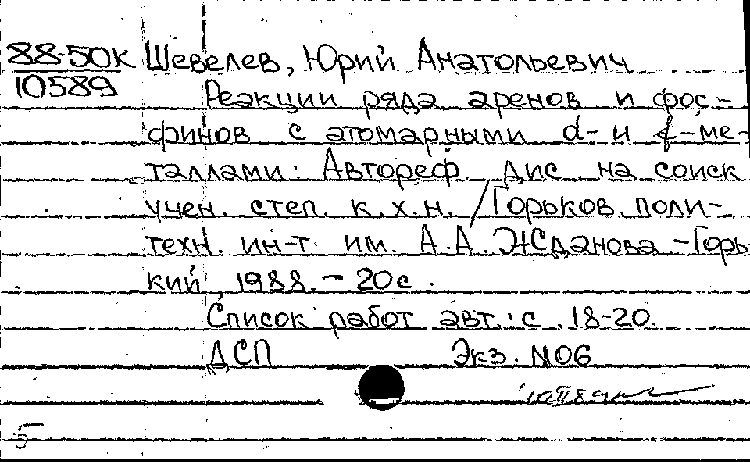 88-50к Шевелев, Юрий Анатольевич
10589
Реакции ряда аренов и фос-
финов с атомарными d- и f-ме-
таллами: Автореф. дис. на соиск
учен. степ. к.х.н. / Горьков. поли-
техн. ин-т им. А.А. Жданова - Горь
кий, 1988. - 20с.
Список работ авт.: с. 18-20.
ДСП Экз. N06
5